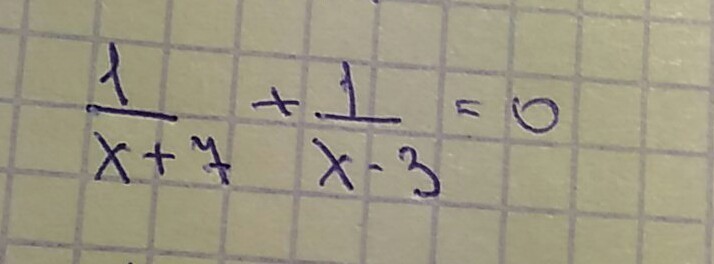 1/(x+7) + 1/(x-3) = 0